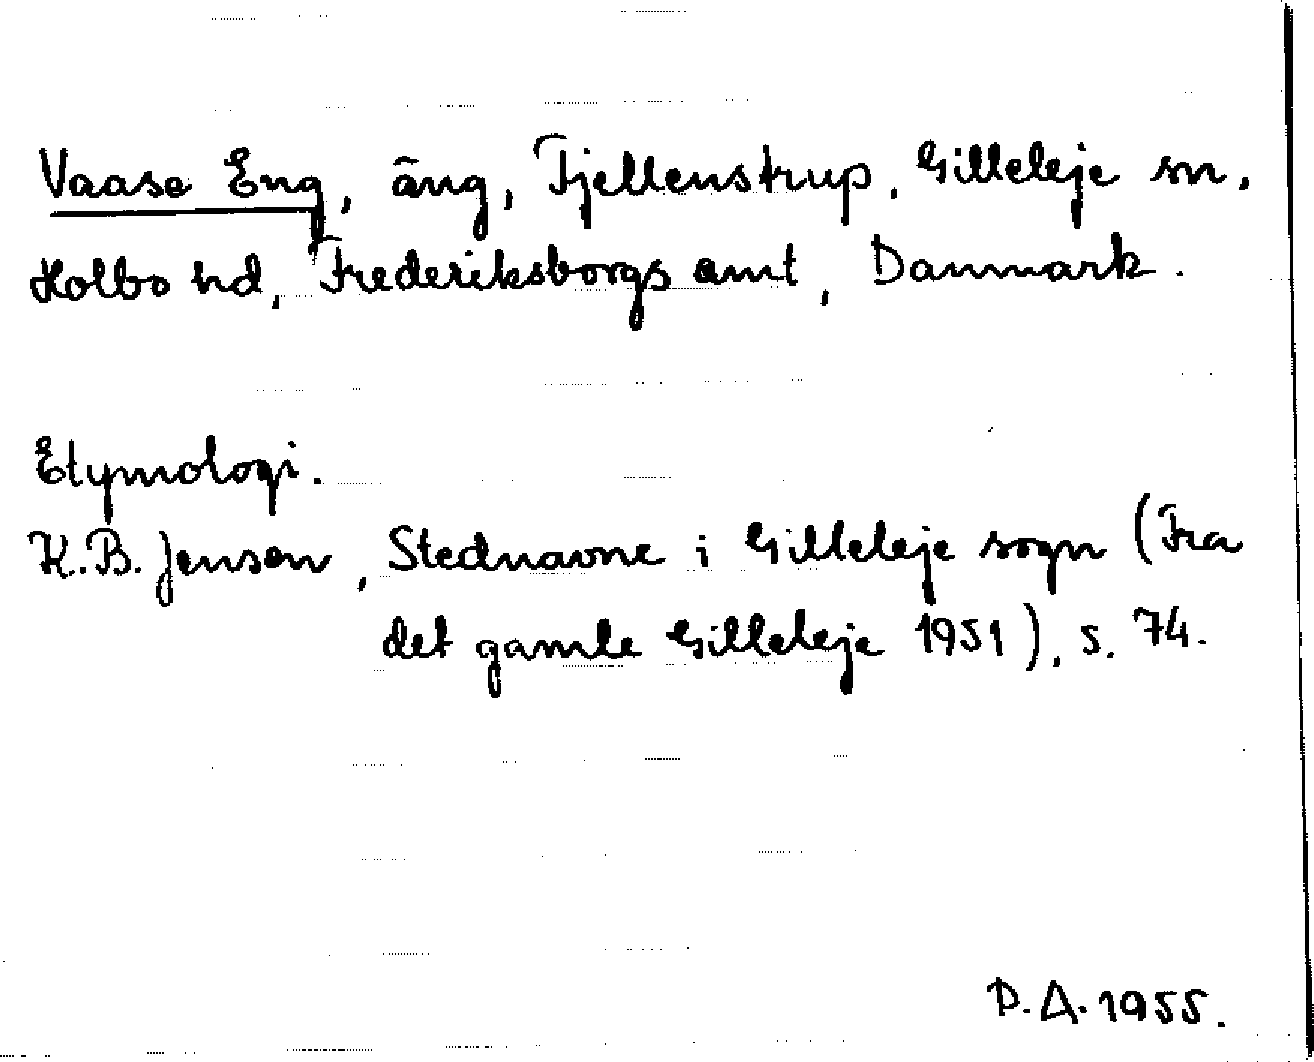 Vaase Eng, äng, Fjellenstrup, Gilleleje sn,
Holbo hd, Frederiksborgs amt, Danmark.
Etymologi.
K.B. Jensen, Stednavne i Gilleleje sogn (Fra
det gamle Gilleleje 1951), s. 74.
D.A. 1955.